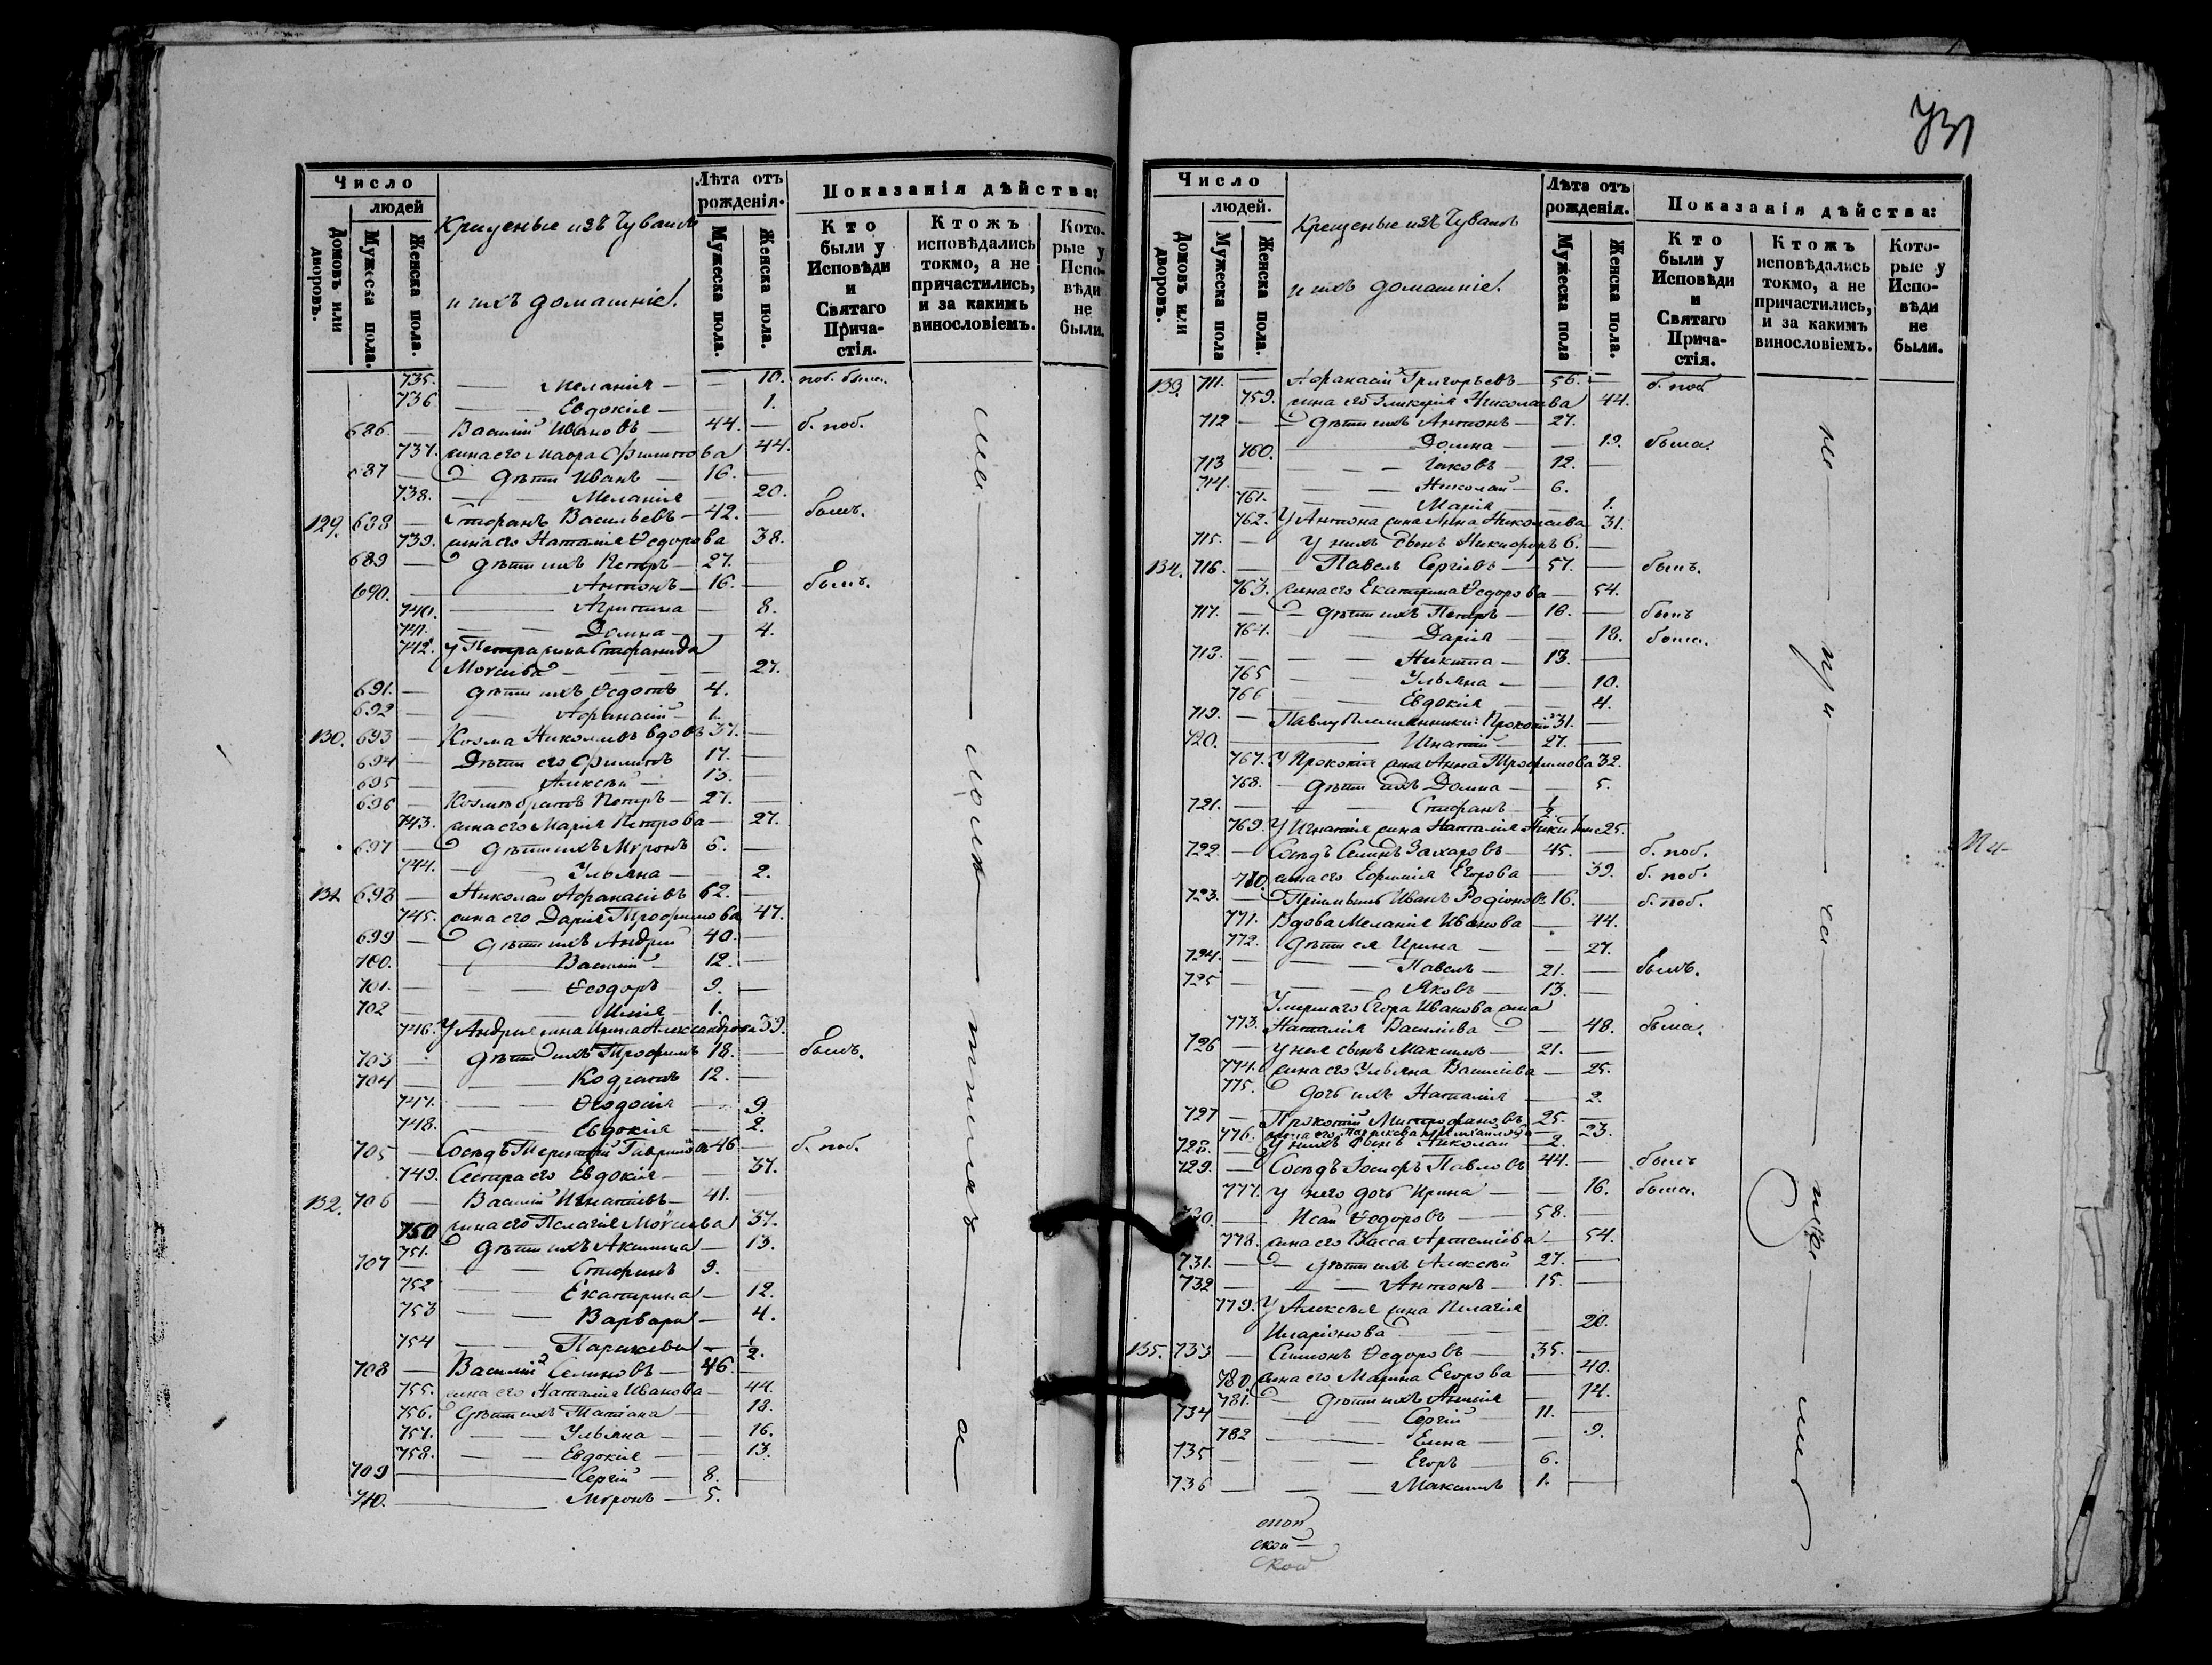 731
Число
людей
Домовъ или дворовъ.
Мужеска пола.
Женска пола.
Крещеные изъ Чувашъ
и ихъ домашніе.
Лѣта отъ рожденія.
Мужеска пола.
Женска пола.
Показанія дѣйства:
Кто были у Исповѣди и Святаго Причастія.
Ктожъ исповѣдались токмо, а не причастились, и за какимъ винословіемъ.
Которые у Исповѣди не были.
735. — Меланія — — 10. поб. была.
736 — — Евдокія — — 1.
686. — Василій Ивановъ — 44. — б. поб.
737. жена его Мавра Филипова 44.
687 — дѣти Иванъ — 16. —
738. — — Меланія — 20.
129. 688 — Стефанъ Васильевъ — 42. — былъ.
739. жена его Наталія Ѳедорова 38.
689 — дѣти ихъ Петръ — 27. —
690. — Антонъ — 16. — былъ.
740. — Агрипина — 8.
741. — — Домна — — 4.
742. у Петра жена Стефанида
Моѵсіева — — — 27.
691. — дѣти ихъ Ѳедотъ 4.
692 — — Аѳанасій — 1.
130. 693 — Козма Николаевъ вдовъ 37. —
694 — Дѣти его Филипъ 17. —
695 — — Алексѣй — 13. —
696 — Козмы братъ Петръ — 27. —
743. жена его Марія Петрова — 27.
697 — дѣти ихъ Мѵронъ 6. —
744. — — Ульяна — — 2.
131. 698 — Николай Аѳанасіевъ 62. —
745. жена его Дарія Трофимова 47.
699 — дѣти ихъ Андрей 40. —
700. — Василій — 12. —
701. — — Ѳеодоръ — 9. —
702 — — Илія — 1.
746. У Андрея жена Ирина Александрова 39.
703 — дѣти ихъ Трофимъ 18. — былъ.
704 — — — Кодратъ 12. —
747. — — Ѳеодосія — — 9.
748. — — Евдокія — 2.
705 — Сосѣдъ Терентій Гавриловъ 46 — б. поб.
749. Сестра его Евдокія — — 37.
132. 706 — Василій Игнатіевъ — 41. —
750 жена его Пелагія Моѵсіева 37.
751. дѣти ихъ Акилина — 13.
707 — — — Стефанъ 9. —
752 — — Екатерина — 12.
753 — — Варвара — 4.
754 — — Параскева — 1/2.
708 — Василій Семеновъ — 46. —
755. жена его Наталія Иванова — 44.
756. дѣти ихъ Татіана — 18.
757. — — Ульяна — — 16.
758. — — Евдокія — — 13.
709 — — Сергій — 8. —
710. — — Мѵронъ — 5.
Число
людей.
Домовъ или дворовъ.
Мужеска пола
Женска пола.
Крещеные изъ Чувашъ
и ихъ домашніе.
Лѣта отъ рожденія.
Мужеска пола
Женска пола.
Показанія дѣйства:
Кто были у Исповѣди и Святаго Причастія.
Ктожъ исповѣдались токмо, а не причастились, и за какимъ винословіемъ.
Которые у Исповѣди не были.
133. 711. — Аѳанасій Григорьевъ — 56. — б. поб
759. жена его Гликерія Николаева 44.
712 — — дѣти ихъ Антонъ — 27.
760. — Домна — — 19. была.
713 — — Іаковъ — 12. —
714. — — Николай — 6.
761. — — Марія — 1.
762. У Антона жена Анна Николаева 31.
715. — У нихъ сынъ Никифоръ 6. —
134. 716. — — Павелъ Сергіевъ — 57. — былъ.
763. жена его Екатерина Ѳедорова — 54.
717. — — дѣти ихъ Петръ — 18. — былъ
764. — — Дарія — — 18. была.
718. — — — Никита — 13. —
765 — — Ульяна — — 10.
766 — — Евдокія — 4.
719. — Павлу племянники: Прокопій 31. —
720. — Игнатій — 27. —
767. У Прокопія жена Анна Трофимова 32.
768. — дѣти ихъ Домна — — 5.
721. — — — Стефанъ — 1/2 —
769. У Игнатія жена Наталія 25.
722 — Сосѣдъ Семенъ Захаровъ — 45. — б. поб.
770. жена его Евфимія Егорова — 39. б. поб.
723. — Пріемышъ Иванъ Родіоновъ 16. — б. поб.
771. Вдова Меланія Иванова — 44.
772. дѣти ея Ирина — — 27.
724. — — — Павелъ — 21. — былъ.
725 — — — Яковъ — 13. —
Умершаго Егора Иванова жена
773. Наталія Василіева — 48. была.
726 — У нея сынъ Максимъ — 21. —
774. жена его Ульяна Василіева — 25.
775. дочь ихъ Наталія — 2.
727 — Прокопій Митрофановъ 25. —
776. жена его Параскева Михайлова — 23.
728. — У нихъ сынъ Николай — 2. —
729. — Сосѣдъ Іосифъ Павловъ 44. — былъ
777. У него дочь Ирина — — 16. была.
730. — Исай Ѳедоровъ — 58. —
778. жена его Васса Артеміева — 54.
731. — — дѣти ихъ Алексѣй 27. —
732 — — — Антонъ — 15. —
779. У Алексѣя жена Пелагія
Иларіонова — — — 20.
135. 733 — Симеонъ Ѳедоровъ — 35. —
780. жена его Марина Егорова — 40.
781. дѣти ихъ Анисія — 14.
734 — — Сергій — 11. —
782 — — Елена — — 9.
735 — — Егоръ — 6.
736 — — — Максимъ 1. —